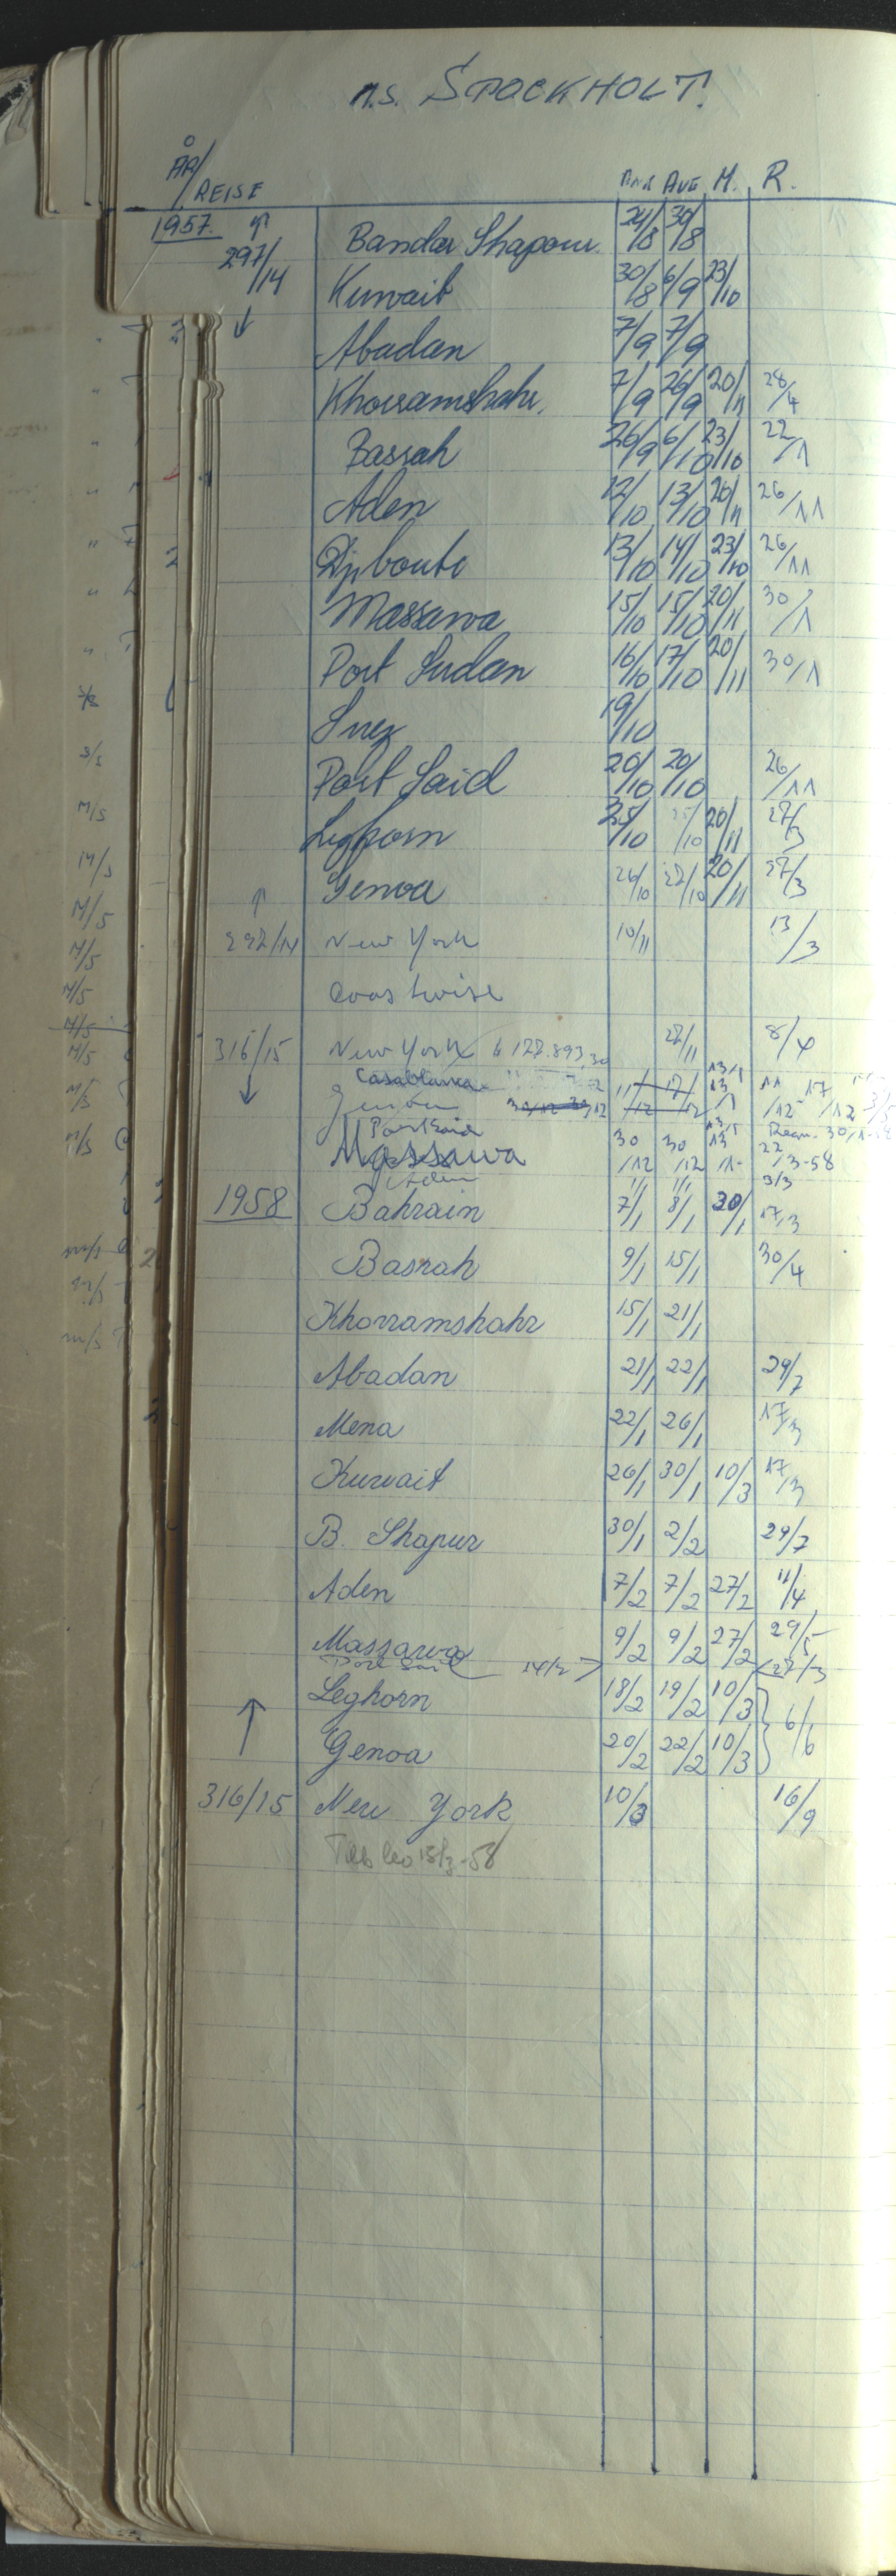 M.S. STOCKHOLT.
ÅR/REISE ANK AVG M. R.
1957. Bandar Shapour 24/8 30/8
297/14 Kuwait 30/8 6/9 23/10
Abadan 7/9 7/9
Khorramshahr. 7/9 26/9 20/11 28/4
Bassah 26/9 6/10 23/10 22/1
Aden 12/10 13/10 20/11 26/11
Djibouti 13/10 14/10 23/10 26/11
Massawa 15/10 15/10 20/11 30/1
Port Sudan 16/10 17/10 20/11 30/1
Suez 19/10
Port Said 20/10 20/10 26/11
Leghorn 25/10 25/10 20/11 27/3
Genoa 26/10 27/10 20/11 27/3
297/14 New York 10/11 13/3
Coastwise
316/15 New York 27/11 8/4
Casablanca 11/12 17/12 13/1 11/12 17/12
Genoa
Port Said 13/1 30/1-58
Massawa 30/12 30/12 13/1- 22/3-58
Aden 1/1 1/1 3/3
1958 Bahrain 7/1 8/1 30/1 17/3
Basrah 9/1 15/1 30/4
Khorramshahr 15/1 21/1
Abadan 21/1 22/1 29/7
Mena 22/1 26/1 17/3
Kuwait 26/1 30/1 10/3 17/3
B. Shapur 30/1 2/2 29/7
Aden 7/2 7/2 27/2 11/4
Massawa 9/2 9/2 27/2 29/5
Port Said 14/2 27/3
Leghorn 18/2 19/2 10/3 6/6
Genoa 20/2 22/2 10/3
316/15 New York 10/3 16/9
15/3-58